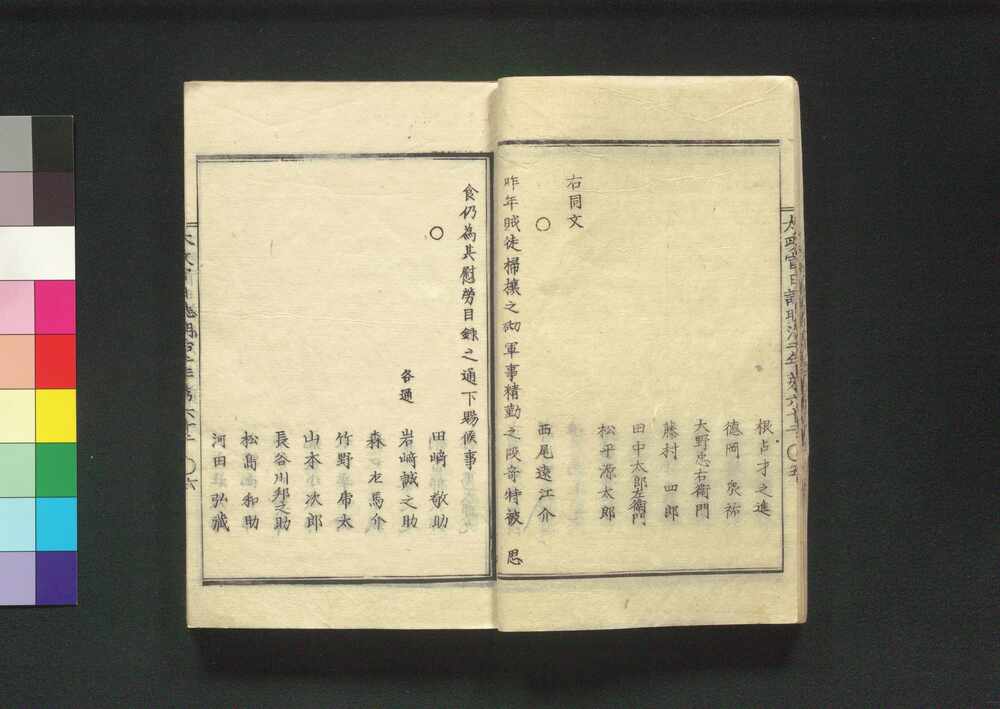 根占才之進
德岡 癸祐
大野忠右衛門
藤村 四郎
田中太郎左衛門
松平源太郎
右同文
○ 西尾遠江介
昨年賊徒掃攘之砌軍事精勤之段奇特被 思
食仍為其慰勞目録之通下賜候事
○ 田﨑敬助
各通 岩﨑誠之助
森 左馬介
竹野庸太
山本小次郎
長谷川邦之助
松島和助
河田弘藏